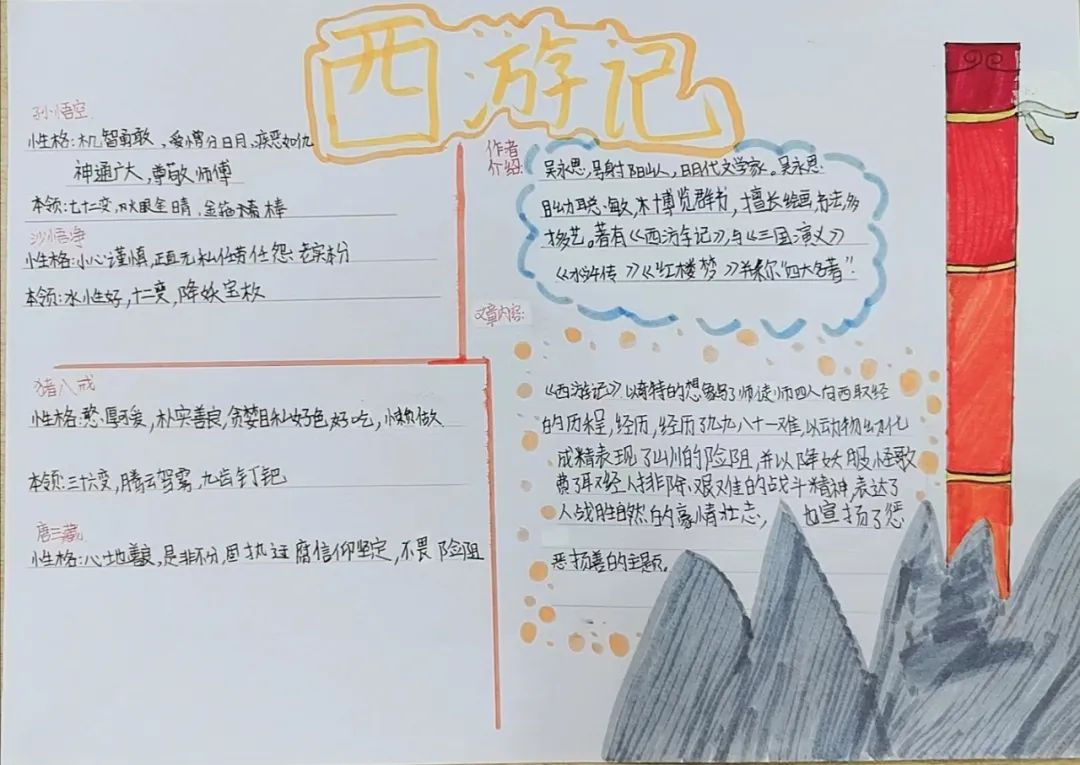 西游记
孙悟空
性格:机智勇敢、爱憎分明、疾恶如仇
神通广大,尊敬师傅
本领:七十二变,火眼金晴、金箍棒
沙悟净
性格:小心谨慎,正直无私任劳任怨
本领:水性好,十二变,降妖宝杖
猪八戒
性格:憨厚可爱,朴实善良,贪婪自私好色,好吃,懒做
本领:三十六变,腾云驾雾,九齿钉钯
唐三藏
性格:心地善良,是非不分,固执迂腐信仰坚定,不畏险阻
作者
介绍:
吴承恩,号射阳山人,明代文学家。吴承恩
自幼聪敏,博览群书,擅长绘画书法,多
才多艺。著有《西游记》,与《三国演义》
《水浒传》《红楼梦》并称"四大名著"
文章内容:
《西游记》以奇特的想象写了师徒师四人向西取经
的历程,经历,经历了九九八十一难,以动物幼化
成精表现了山川的险阻,并以降妖服怪歌
费了取经人排除艰难的战斗精神,表达了
人战胜自然的豪情壮志,也宣扬了惩
恶扬善的主题。